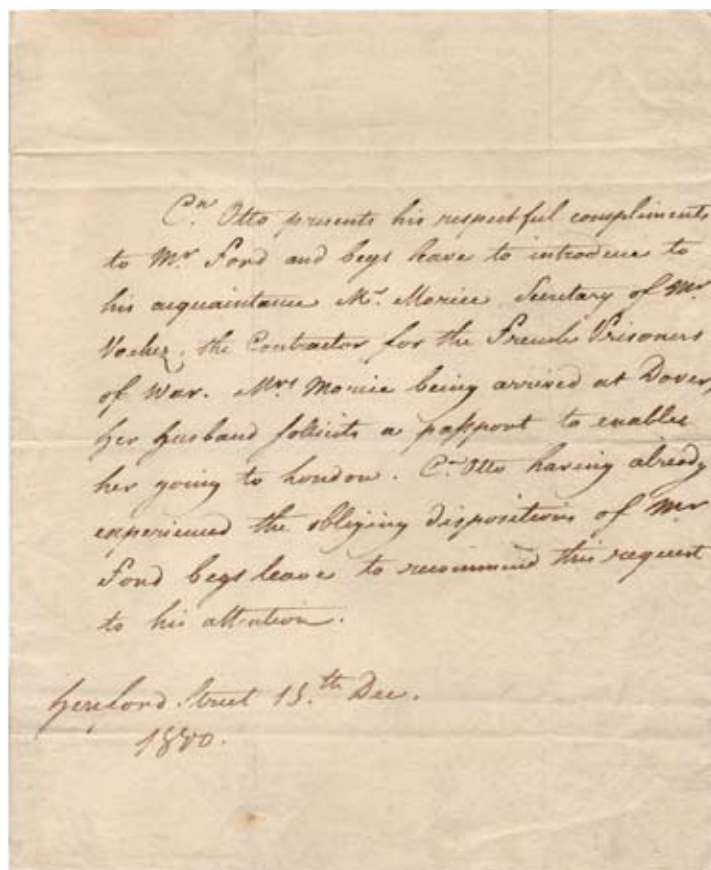 Cn. Otto presents his respectful compliments
to Mr. Ford and begs leave to introduce to
his acquaintance Mr. Morice Secretary of Mr.
the Contractor for the French Prisoners
of War. Mrs Morice being arrived at Dover,
her husband sollicits a passport to enable
her going to London. Cn. Otto having already
experienced the obliging dispositions of Mr
Ford begs leave to recommend this request
to his attention.
Hereford Street 15.th Dec.
1800.